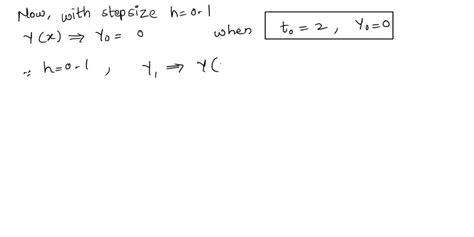 Now, with stepsize h=0.1
Y(x) ⇒ Y₀ = 0 when t₀ = 2, Y₀=0
∵ h=0.1, Y₁ ⇒ Y(